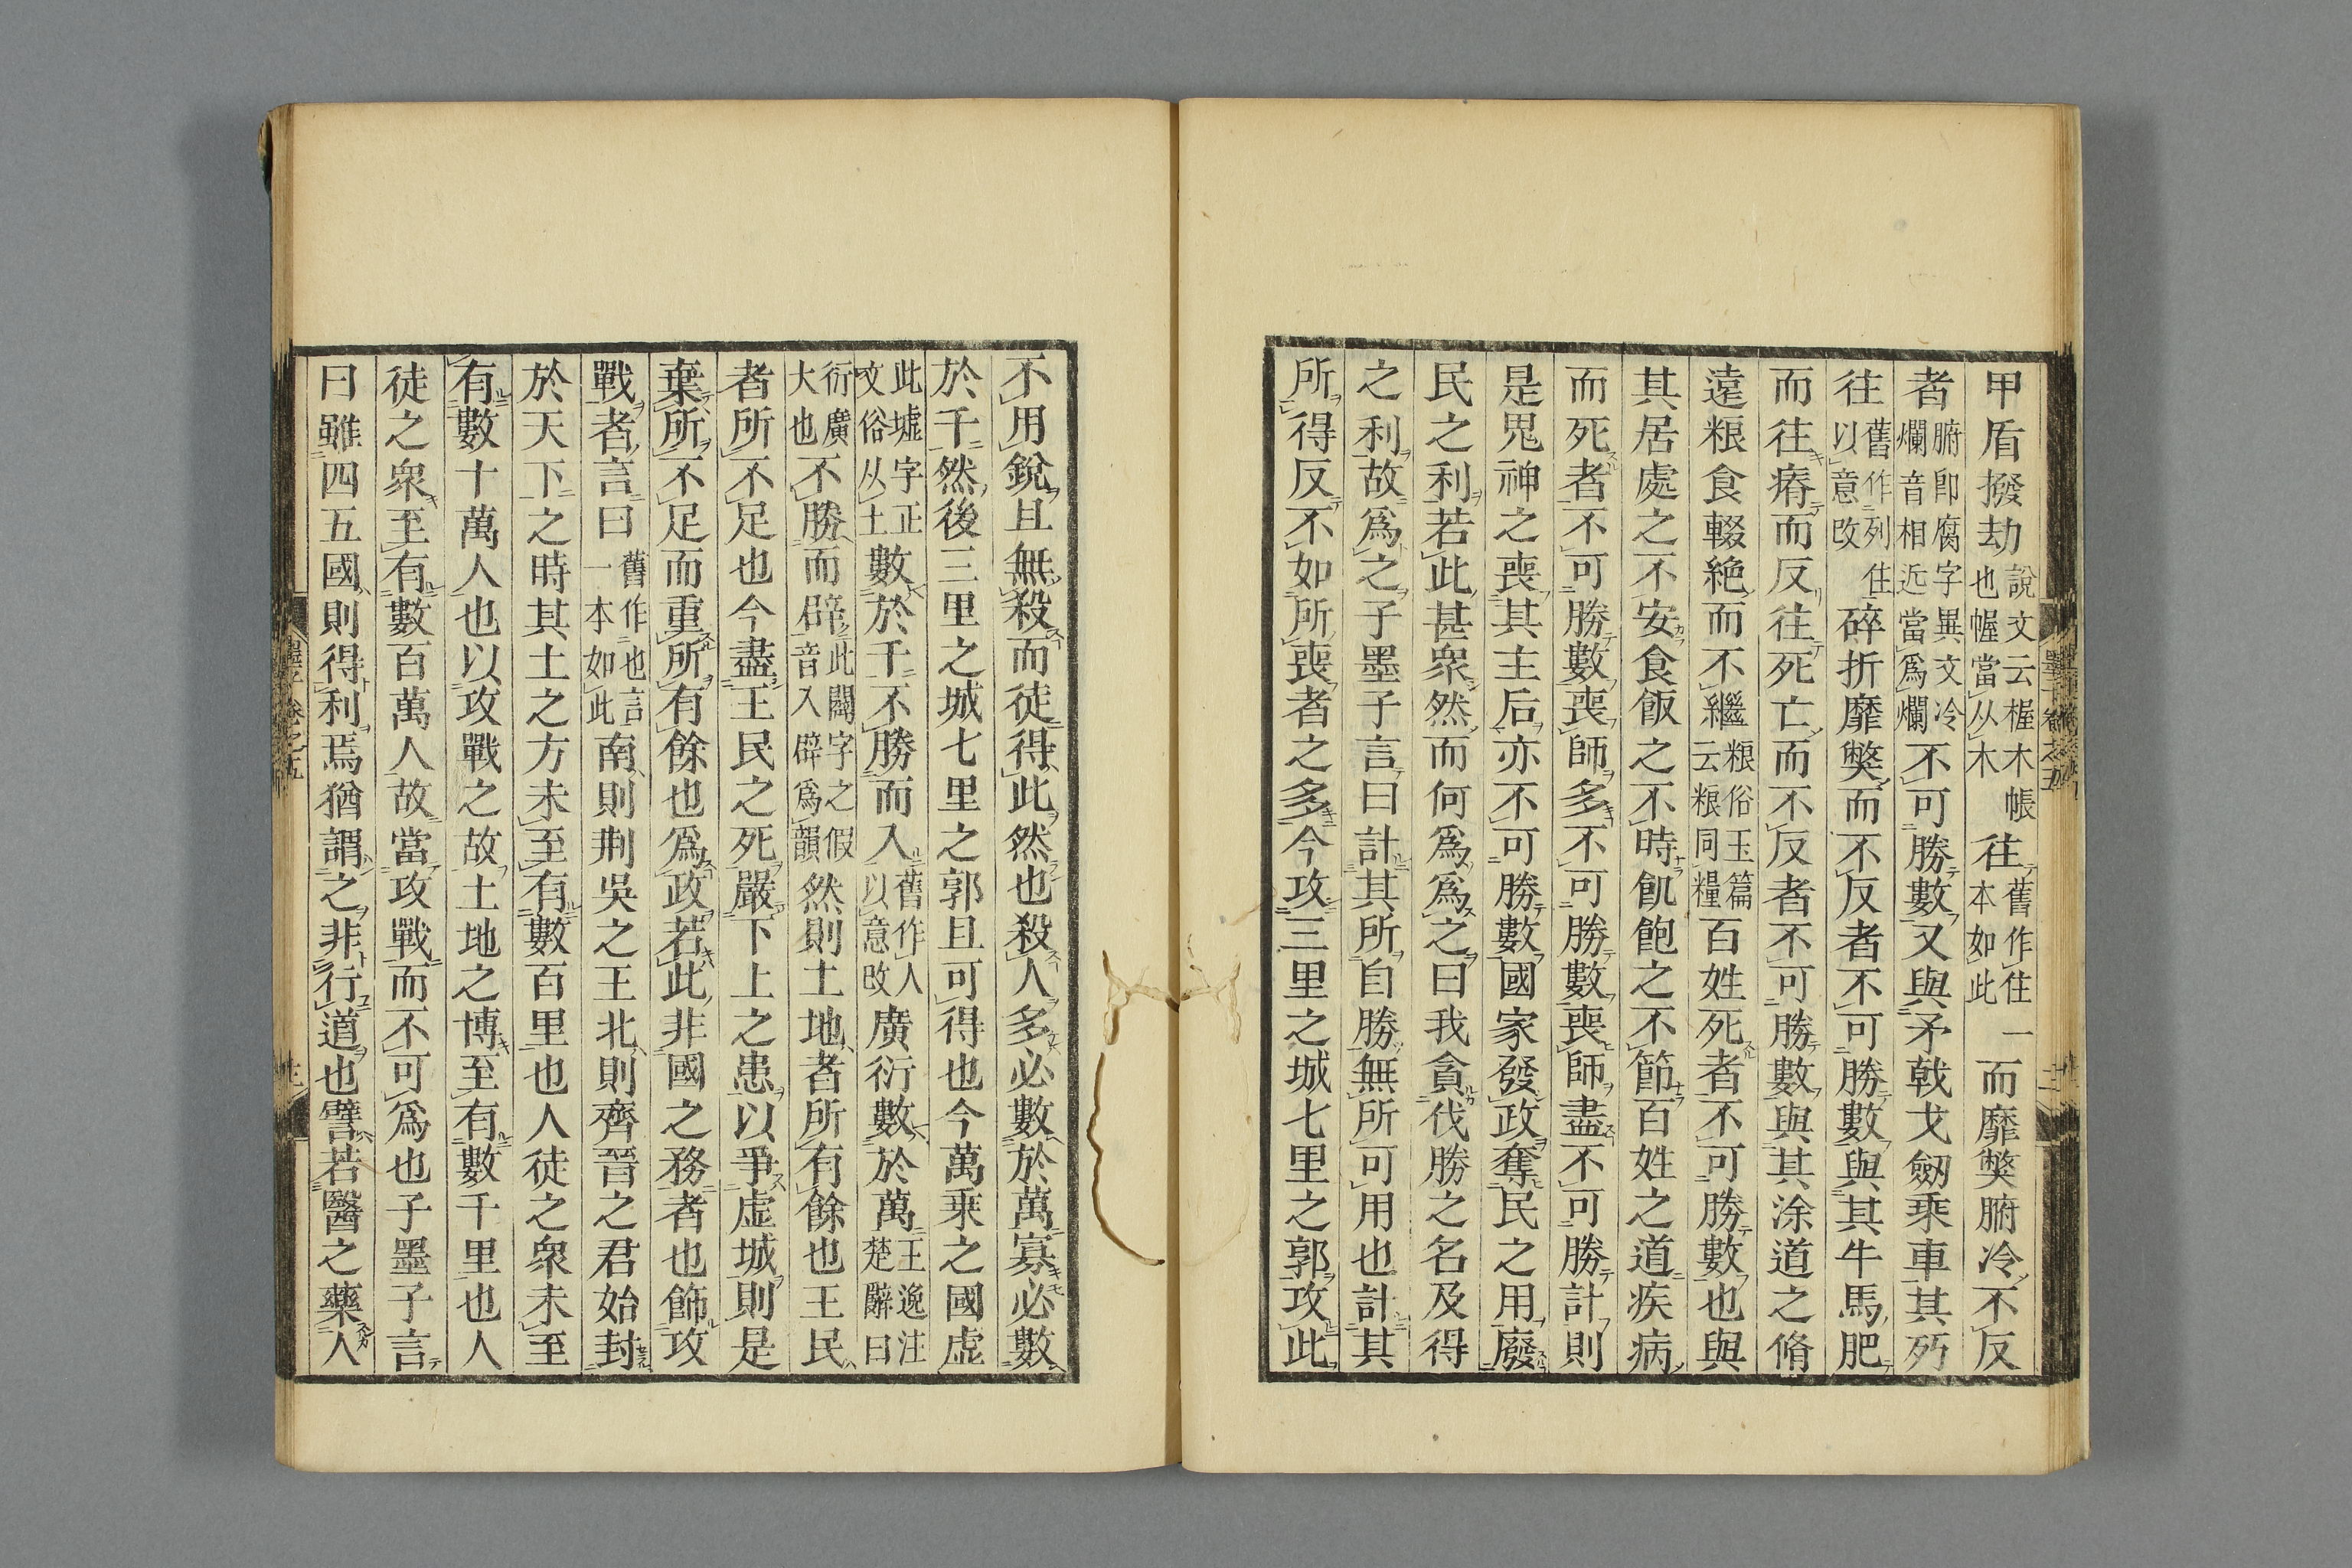 甲盾撥劫說文云楃木帳也幄當从木往舊作住一本如此而靡獘腑冷不反
者腑卽腐字異文冷爛音相近當爲爛不可勝數又與矛戟戈劒乘車其死
往舊作列住以意改碎折靡獘而不反者不可勝數與其牛馬肥
而往瘠而反往死亡而不反者不可勝數與其涂道之脩
遠粮食輟絶而不繼粮俗玉篇云粮同糧百姓死者不可勝數也與
其居處之不安食飯之不時飢飽之不節百姓之道疾病
而死者不可勝數喪師多不可勝數喪師盡不可勝計則
是鬼神之喪其主后亦不可勝數國家發政奪民之用廢
民之利若此甚衆然而何爲爲之曰我貪伐勝之名及得
之利故爲之子墨子言曰計其所自勝無所可用也計其
所得反不如所喪者之多今攻三里之城七里之郭攻此
不用銳且無殺而徒得此然也殺人多必數於萬寡必數
於千然後三里之城七里之郭且可得也今萬乗之國虛
此墟字正文俗从土數於千不勝而入舊作人以意改廣衍數於萬王逸注楚辭曰
衍廣大也不勝而辟此闢字之假音入辟爲韻然則土地者所有餘也王民
者所不足也今盡王民之死嚴下上之患以爭虛城則是
棄所不足而重所有餘也爲政若此非國之務者也飾攻
戰者言曰舊作也言一本如此南則荆吳之王北則齊晉之君始封
於天下之時其土之方未至有數百里也人徒之衆未至
有數十萬人也以攻戰之故土地之博至有數千里也人
徒之衆至有數百萬人故當攻戰而不可爲也子墨子言
曰雖四五國則得利焉猶謂之非行道也譬若醫之藥人
墨子卷之五